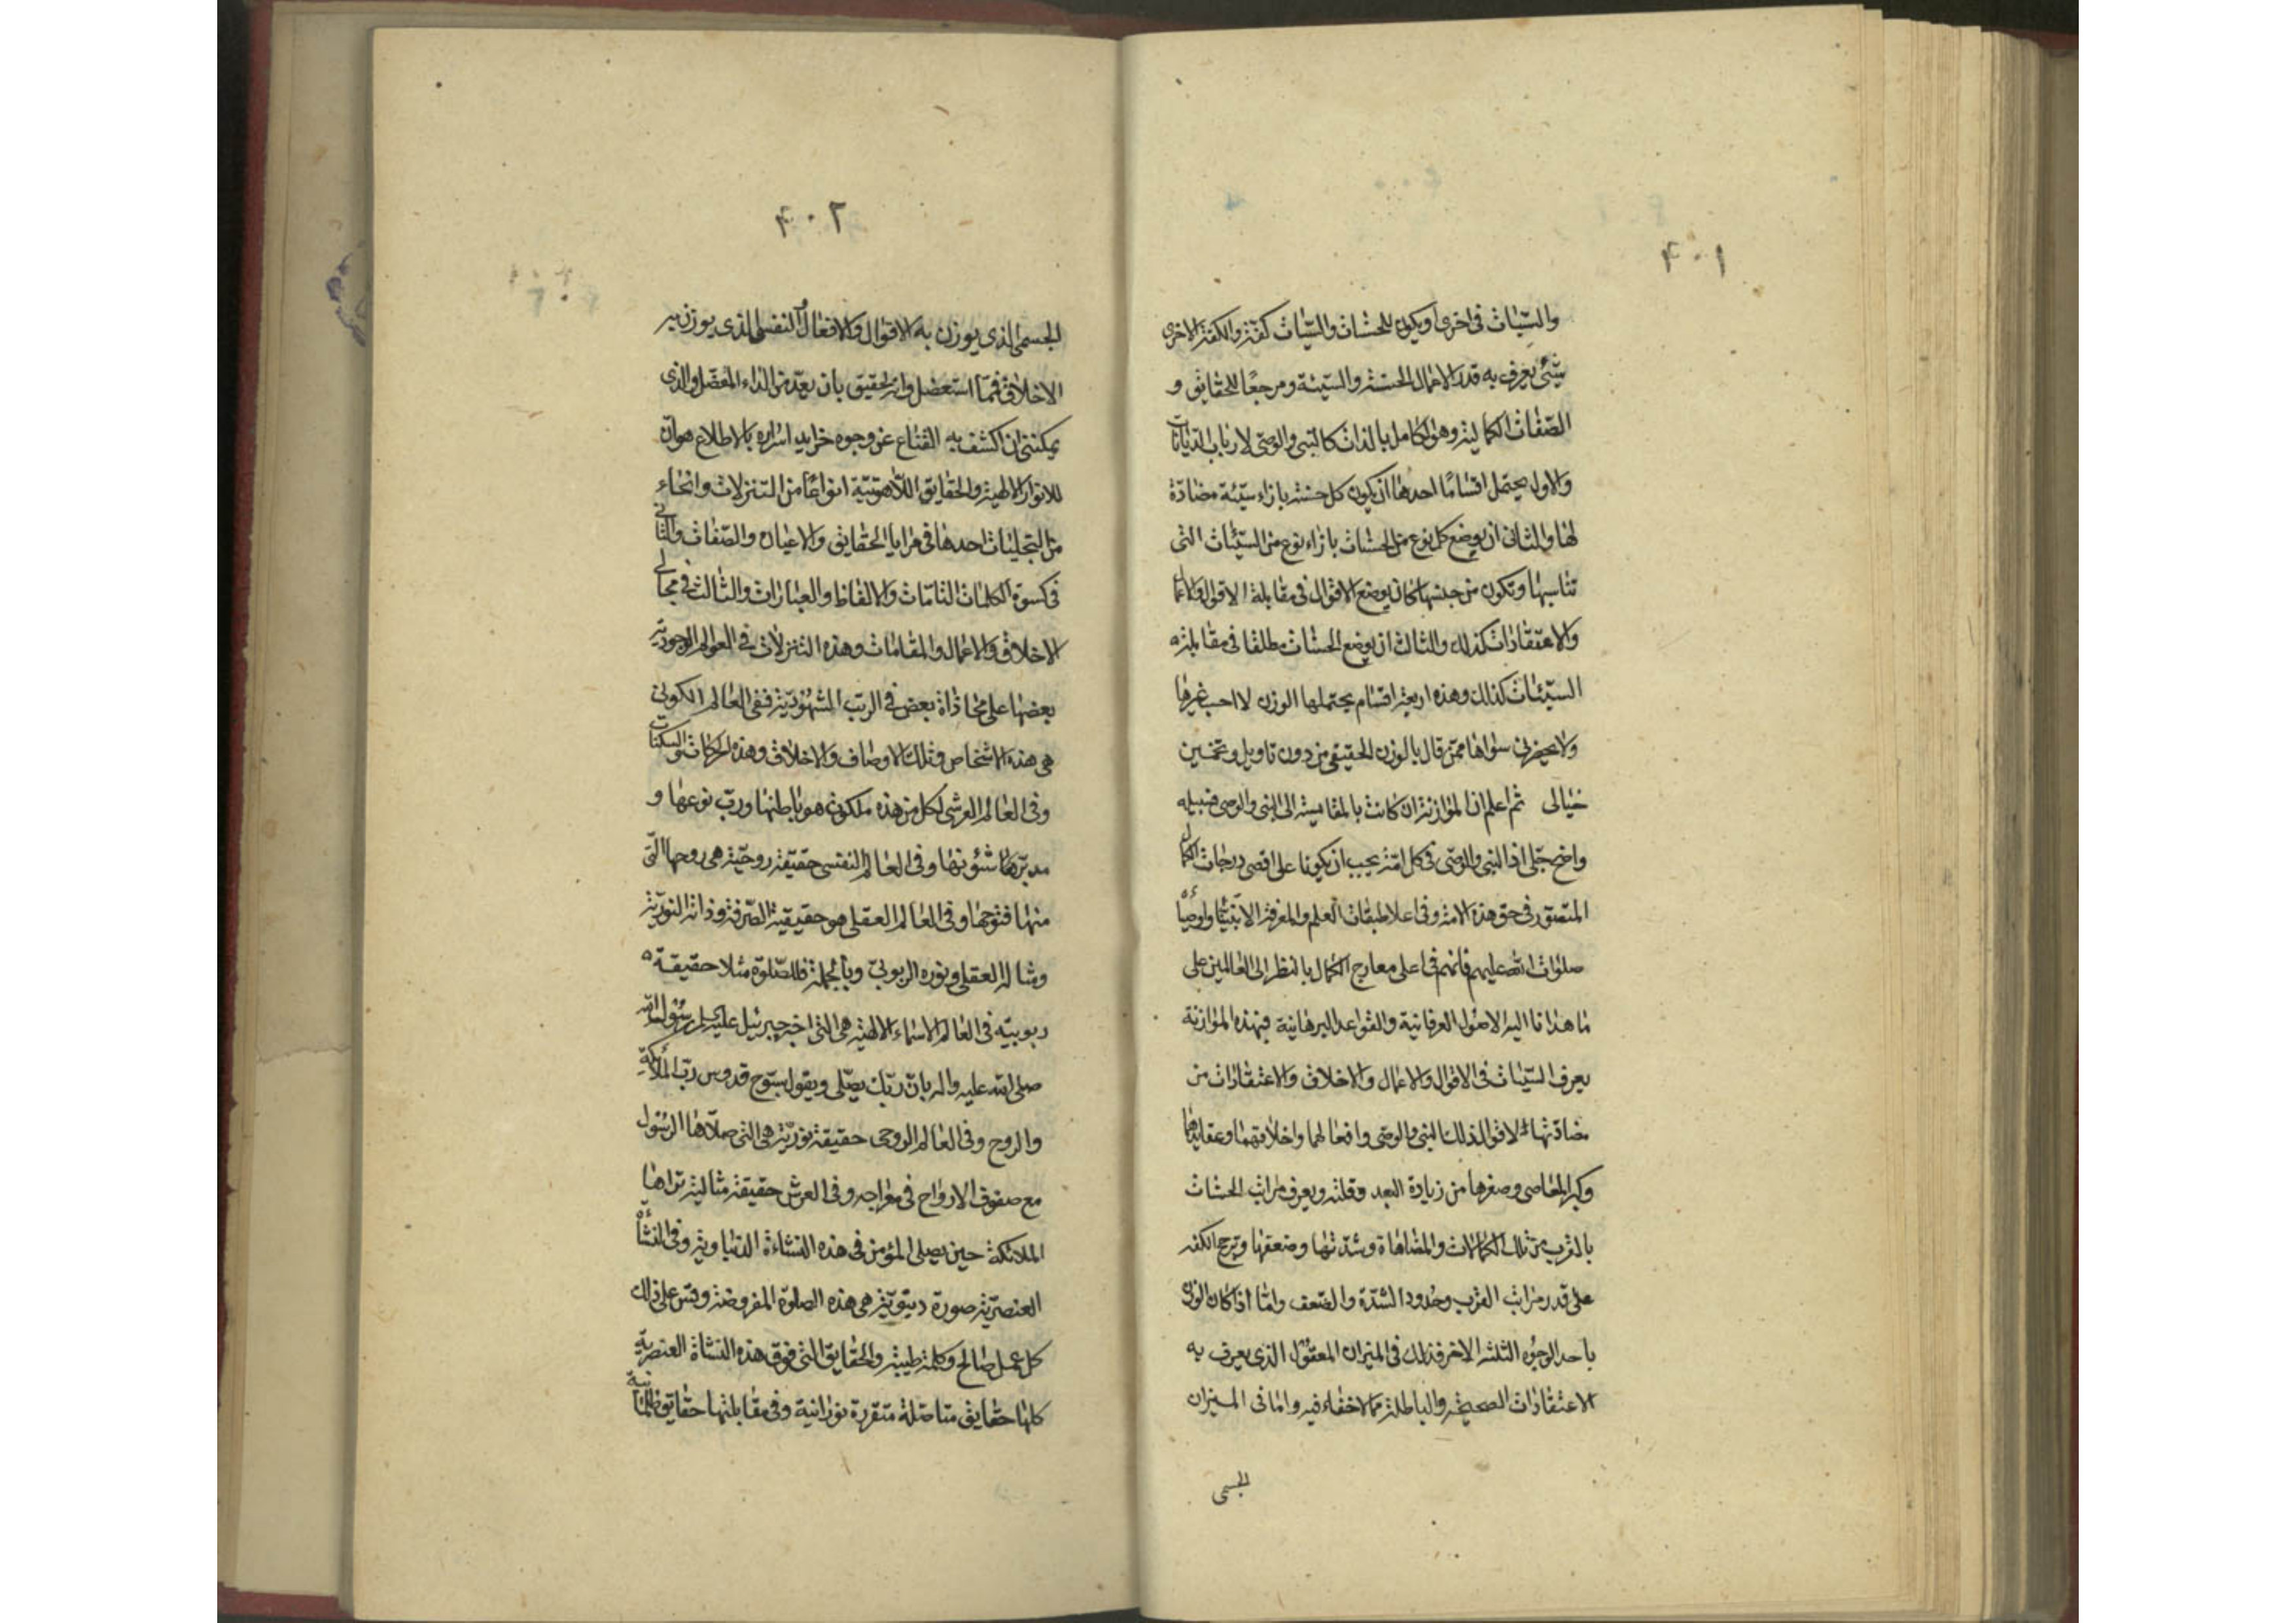 ۴۰۱
والسّيّئات فى اخرى او يكون للحسنات والسّيّئات كفّة والكفّة الاخرى
شىء يعرف به قدر الاعمال الحسنة والسّيئة ومرجعًا للحقايق و
الصّفات الكمالية وهو الكامل بالذات كالنبى والوصىّ لارباب الدّيانات
والاول يحتمل اقسامًا احدها ان يكون كل حسنة بازاء سيّئة مضادّة
لها والثانى ان يوضع كل نوع من الحسنات بازاء نوع من السيّئات التى
تناسبها وتكون من جنسها كان يوضع الاقوال فى مقابلة الاقوال والاعمال
والاعتقادات كذلك والثالث ان يوضع الحسنات مطلقا فى مقابلة
السيّئات كذلك وهذه اربعة اقسام يحتملها الوزن لا احب غيرها
ولا يحضرنى سواها ممّن قال بالوزن الحقيقى من دون تاويل وتخمين
خيالى ثم اعلم ان الموازنة ان كانت بالمقايسة الى النبى والوصى فسبيله
واضح جلى اذ النبى والوصىّ فى كل امّة يجب ان يكونا على اقصى درجات الكمال
المتصوّر فى حق هذه الامة وفى اعلا طبقات العلم والمعرفة الا نبيّنا واوصياءه
صلوات الله عليهم فانهم فى اعلى معارج الكمال بالنظر الى العالمين على
ما هدانا اليه الاصول العرفانية والقواعد البرهانية فبهذه الموازنة
يعرف السيّئات فى الاقوال والاعمال والاخلاق والاعتقادات من
مضادّتها لاقوال ذلك النبى والوصى وافعالهما واخلاقهما وعقايدهما
وكبر المعاصى وصغرها من زيادة البعد وقلّته ويعرف مراتب الحسنات
بالقرب من تلك الكمالات والمضاهاة وشدّتها وضعفها وترجح الكفه
على قدر مراتب القرب وحدود الشدّة والضعف وامّا اذا كان الوزن
باحد الوجوه الثلثة الاخر فذلك فى الميزان المعقول الذى يعرف به
الاعتقادات الصحيحة والباطلة ممّا لا خفاء فيه وامّا فى الميزان
الجسمى
۴۰۲
الجسمى الذى يوزن به الاقوال والافعال والنفسى الذى يوزن به
الاخلاق فممّا استعضل وانه لحقيق بان يعدّ من الداء المعضل والذى
يمكننى ان اكشف به القناع عن وجوه خرايد اسراره بالاطلاع هو ان
للانوار الالهية والحقايق اللّاهوتيّة انواعًا من التنزلات وانحاء
من التجليات احدها فى مرايا الحقايق والاعيان والصّفات والثانى
فى كسوة الكلمات التامّات والالفاظ والعبارات والثالث فى مجالى
الاخلاق والاعمال والمقامات وهذه التنزلات فى العوالم الوجوديّة
بعضها على محاذاة بعض فى الرتب الشهوديّة ففى العالم الكونى
هى هذه الاشخاص وتلك الاوصاف والاخلاق وهذه الحركات والسكنات
وفى العالم العرشى لكل من هذه ملكوت هو باطنها وربّ نوعها و
مدبّرها شئونها وفى العالم النفسى حقيقة روحيّة هى روحها الّتى
منها فتوحها وفى العالم العقلى هو حقيقيّة الصّرفة وذاته النوريّة
ومثاله العقلى ونوره الربوبىّ وبالجملة فللصّلوة مثلا حقيقة
ربوبيّة فى العالم الاسماء الالهيّة هى التى اخبر جبرئيل عليه السلام رسول الله
صلى الله عليه واله بانّ ربّك يصلّى ويقول سبّوح قدوس ربّ الملائكة
والروح وفى العالم الروحى حقيقة نوريّة هى التى صلّاها الرسول
مع صفوف الارواح فى معراجه وفى العرش حقيقة مثالية تراها
الملائكة حين يصلى المؤمن فى هذه النشاءة الدنياوية وفى النشأة
العنصريّة صورة دنيويّة هى هذه الصلوة المفروضة وقس على ذلك
كل عمل صالح وكلمة طيبة والحقايق التى فوق هذه النشاة العنصريّة
كلها حقايق متاصّلة متقررة نورانية وفى مقابلتها حقايق ظلمانيّة